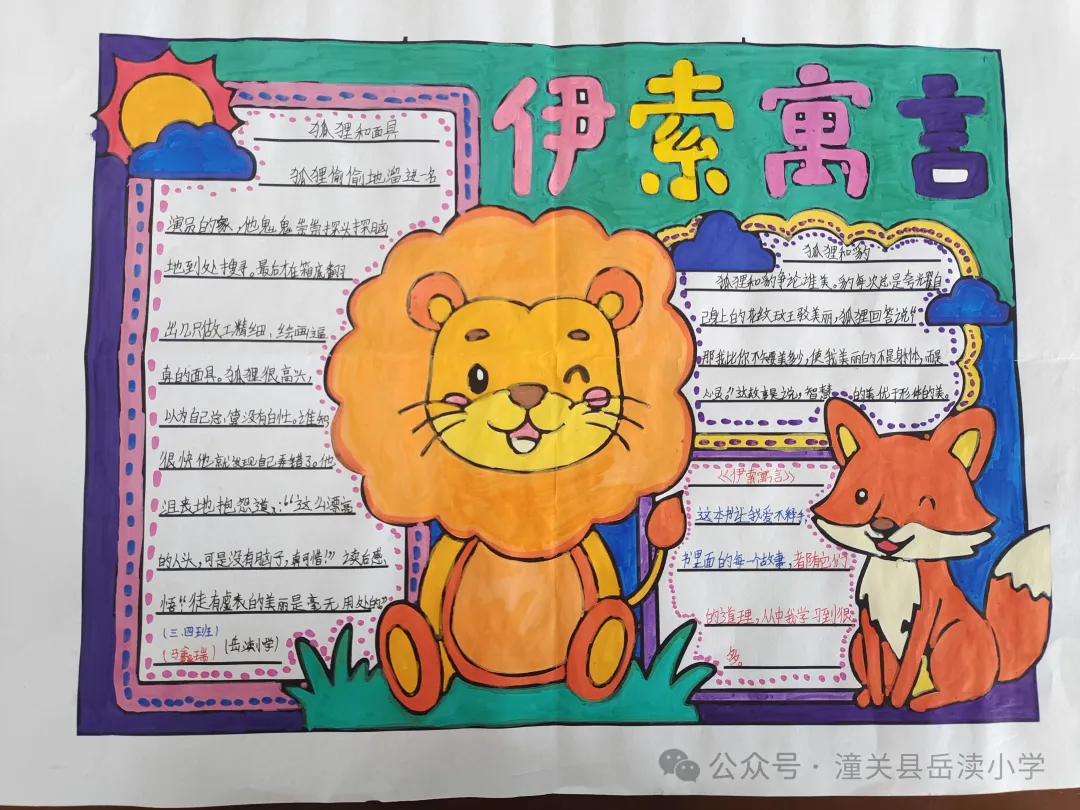 伊索寓言
狐狸和面具
狐狸偷偷地溜进一名
演员的家,他鬼鬼祟祟探头探脑
地到处搜寻。最后才在箱底翻
出几只做工精细,绘画逼
真的面具。狐狸很高兴,
以为自己总算没有白忙。谁知
很快他就发现自己弄错了。他
沮丧地抱怨道:“这么漂亮
的人头,可是没有脑子,真可惜!”读后感
悟“徒有虚表的美丽是毫无用处的”
(三.四班)
(岳渎小学)
狐狸和豹
狐狸和豹争论谁美。豹每次总是夸耀自
己身上的花纹
美丽,狐狸回答说“
那我比你不知要美多少,使我美丽的不是躯体,而是
心灵。”这故事是说,智慧的美优于形体的美。
《伊索寓言》
这本书让我爱不释手,
书里面的每一个故事,都有它们
的道理,从中我学习到很
多。
公众号·潼关县岳渎小学